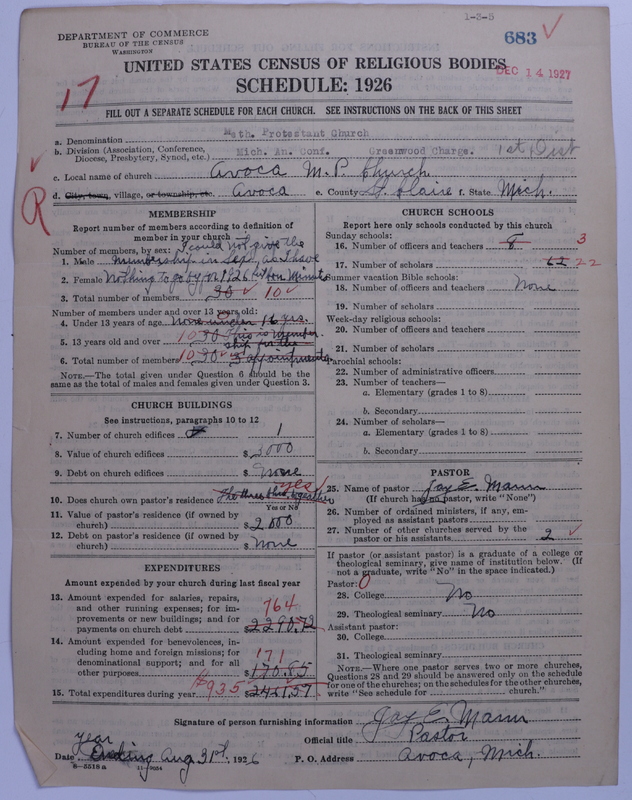 1-3-5
683 ✓
DEPARTMENT OF COMMERCE
BUREAU OF THE CENSUS
WASHINGTON
UNITED STATES CENSUS OF RELIGIOUS BODIES
DEC 14 1927
SCHEDULE: 1926
17
FILL OUT A SEPARATE SCHEDULE FOR EACH CHURCH. SEE INSTRUCTIONS ON THE BACK OF THIS SHEET
a. Denomination Meth. Protestant Church
b. Division (Association, Conference, Diocese, Presbytery, Synod, etc.) Mich. An. Conf. Greenwood Charge. 1st Dist
c. Local name of church Avoca M.P. Church
d. City, town, village, or township, etc. Avoca e. County St. Claire f. State Mich.
R
MEMBERSHIP
Report number of members according to definition of
member in your church
I could not give the
Number of members, by sex:
1. Male membership in Sept, as I have
2. Female Nothing to go by on 1926 but Minute
3. Total number of members 30 ✓ 10 ✓
Number of members under and over 13 years old:
4. Under 13 years of age none under 16 yrs.
5. 13 years old and over 10 30 This is member
ship for the
6. Total number of members 10 30 ✓ 3 appointments
NOTE.—The total given under Question 6 should be
same as the total of males and females given under Question 3.
CHURCH BUILDINGS
See instructions, paragraphs 10 to 12
7. Number of church edifices 1
8. Value of church edifices $ 3000
9. Debt on church edifices $ None
10. Does church own pastor's residence The three this together yes
Yes or No
11. Value of pastor's residence (if owned by
church) $ 2000
12. Debt on pastor's residence (if owned by
church) $ None
EXPENDITURES
Amount expended by your church during last fiscal year
13. Amount expended for salaries, repairs,
and other running expenses; for im-
provements or new buildings; and for
payments on church debt $ 764 2290.72
14. Amount expended for benevolences, in-
cluding home and foreign missions; for
denominational support; and for all
other purposes $ 171 170.85
15. Total expenditures during year $935 $
CHURCH SCHOOLS
Report here only schools conducted by this church
Sunday schools:
16. Number of officers and teachers 8 3
17. Number of scholars 62 22
Summer vacation Bible schools:
18. Number of officers and teachers None
19. Number of scholars
Week-day religious schools:
20. Number of officers and teachers
21. Number of scholars
Parochial schools:
22. Number of administrative officers
23. Number of teachers—
a. Elementary (grades 1 to 8)
b. Secondary
24. Number of scholars—
a. Elementary (grades 1 to 8)
b. Secondary
PASTOR
25. Name of pastor Jay E. Mann
(If church has no pastor, write "None")
26. Number of ordained ministers, if any, em-
ployed as assistant pastors
27. Number of other churches served by the
pastor or his assistants 2 ✓
If pastor (or assistant pastor) is a graduate of a college or
theological seminary, give name of institution below. (If
not a graduate, write "No" in the space indicated.)
Pastor: 0
28. College No
29. Theological seminary No
Assistant pastor:
30. College
31. Theological seminary
NOTE.—Where one pastor serves two or more churches,
Questions 28 and 29 should be answered only on the schedule
for one of the churches; on the schedules for the other churches,
write "See schedule for church."
Signature of person furnishing information Jay E. Mann
Official title Pastor
year
Date Ending Aug 31st, 1926 P. O. Address Avoca, Mich.
8—5518 a 11—9054